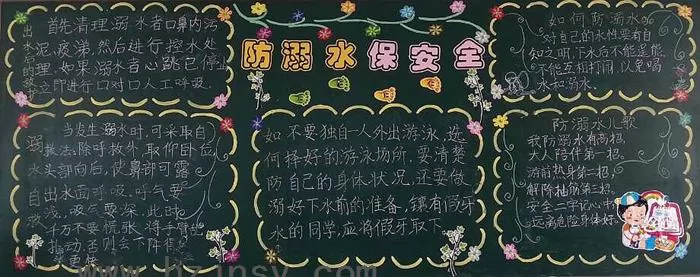 防溺水保安全
出水后的救护
首先清理溺水者口鼻内污
泥、痰涕,然后进行控水处
理.如果溺水者心跳已停止
立即进行口对口人工呼吸.
溺水自救
当发生溺水时,可采取自
救法,除呼救外,取仰卧位,
头部向后,使鼻部可露
出水面呼吸.呼气要
浅,吸气要深.此时
千万不要慌张,将手臂
乱动,否则会下降得
更快
如不要独自一人外出游泳,选
何择好的游泳场所,要清楚
防自己的身体状况,还要做
溺好下水前的准备,镶有假牙
水的同学,应将假牙取下
如何防溺水
对自己的水性要有自
知之明,下水后不能逞能,
不能互相打闹,以免喝
水和溺水.
防溺水儿歌
我防溺水有高招,
大人陪伴第一招.
游前热身第二招,
解除抽筋第三招,
安全二字记心中
远离危险身体好